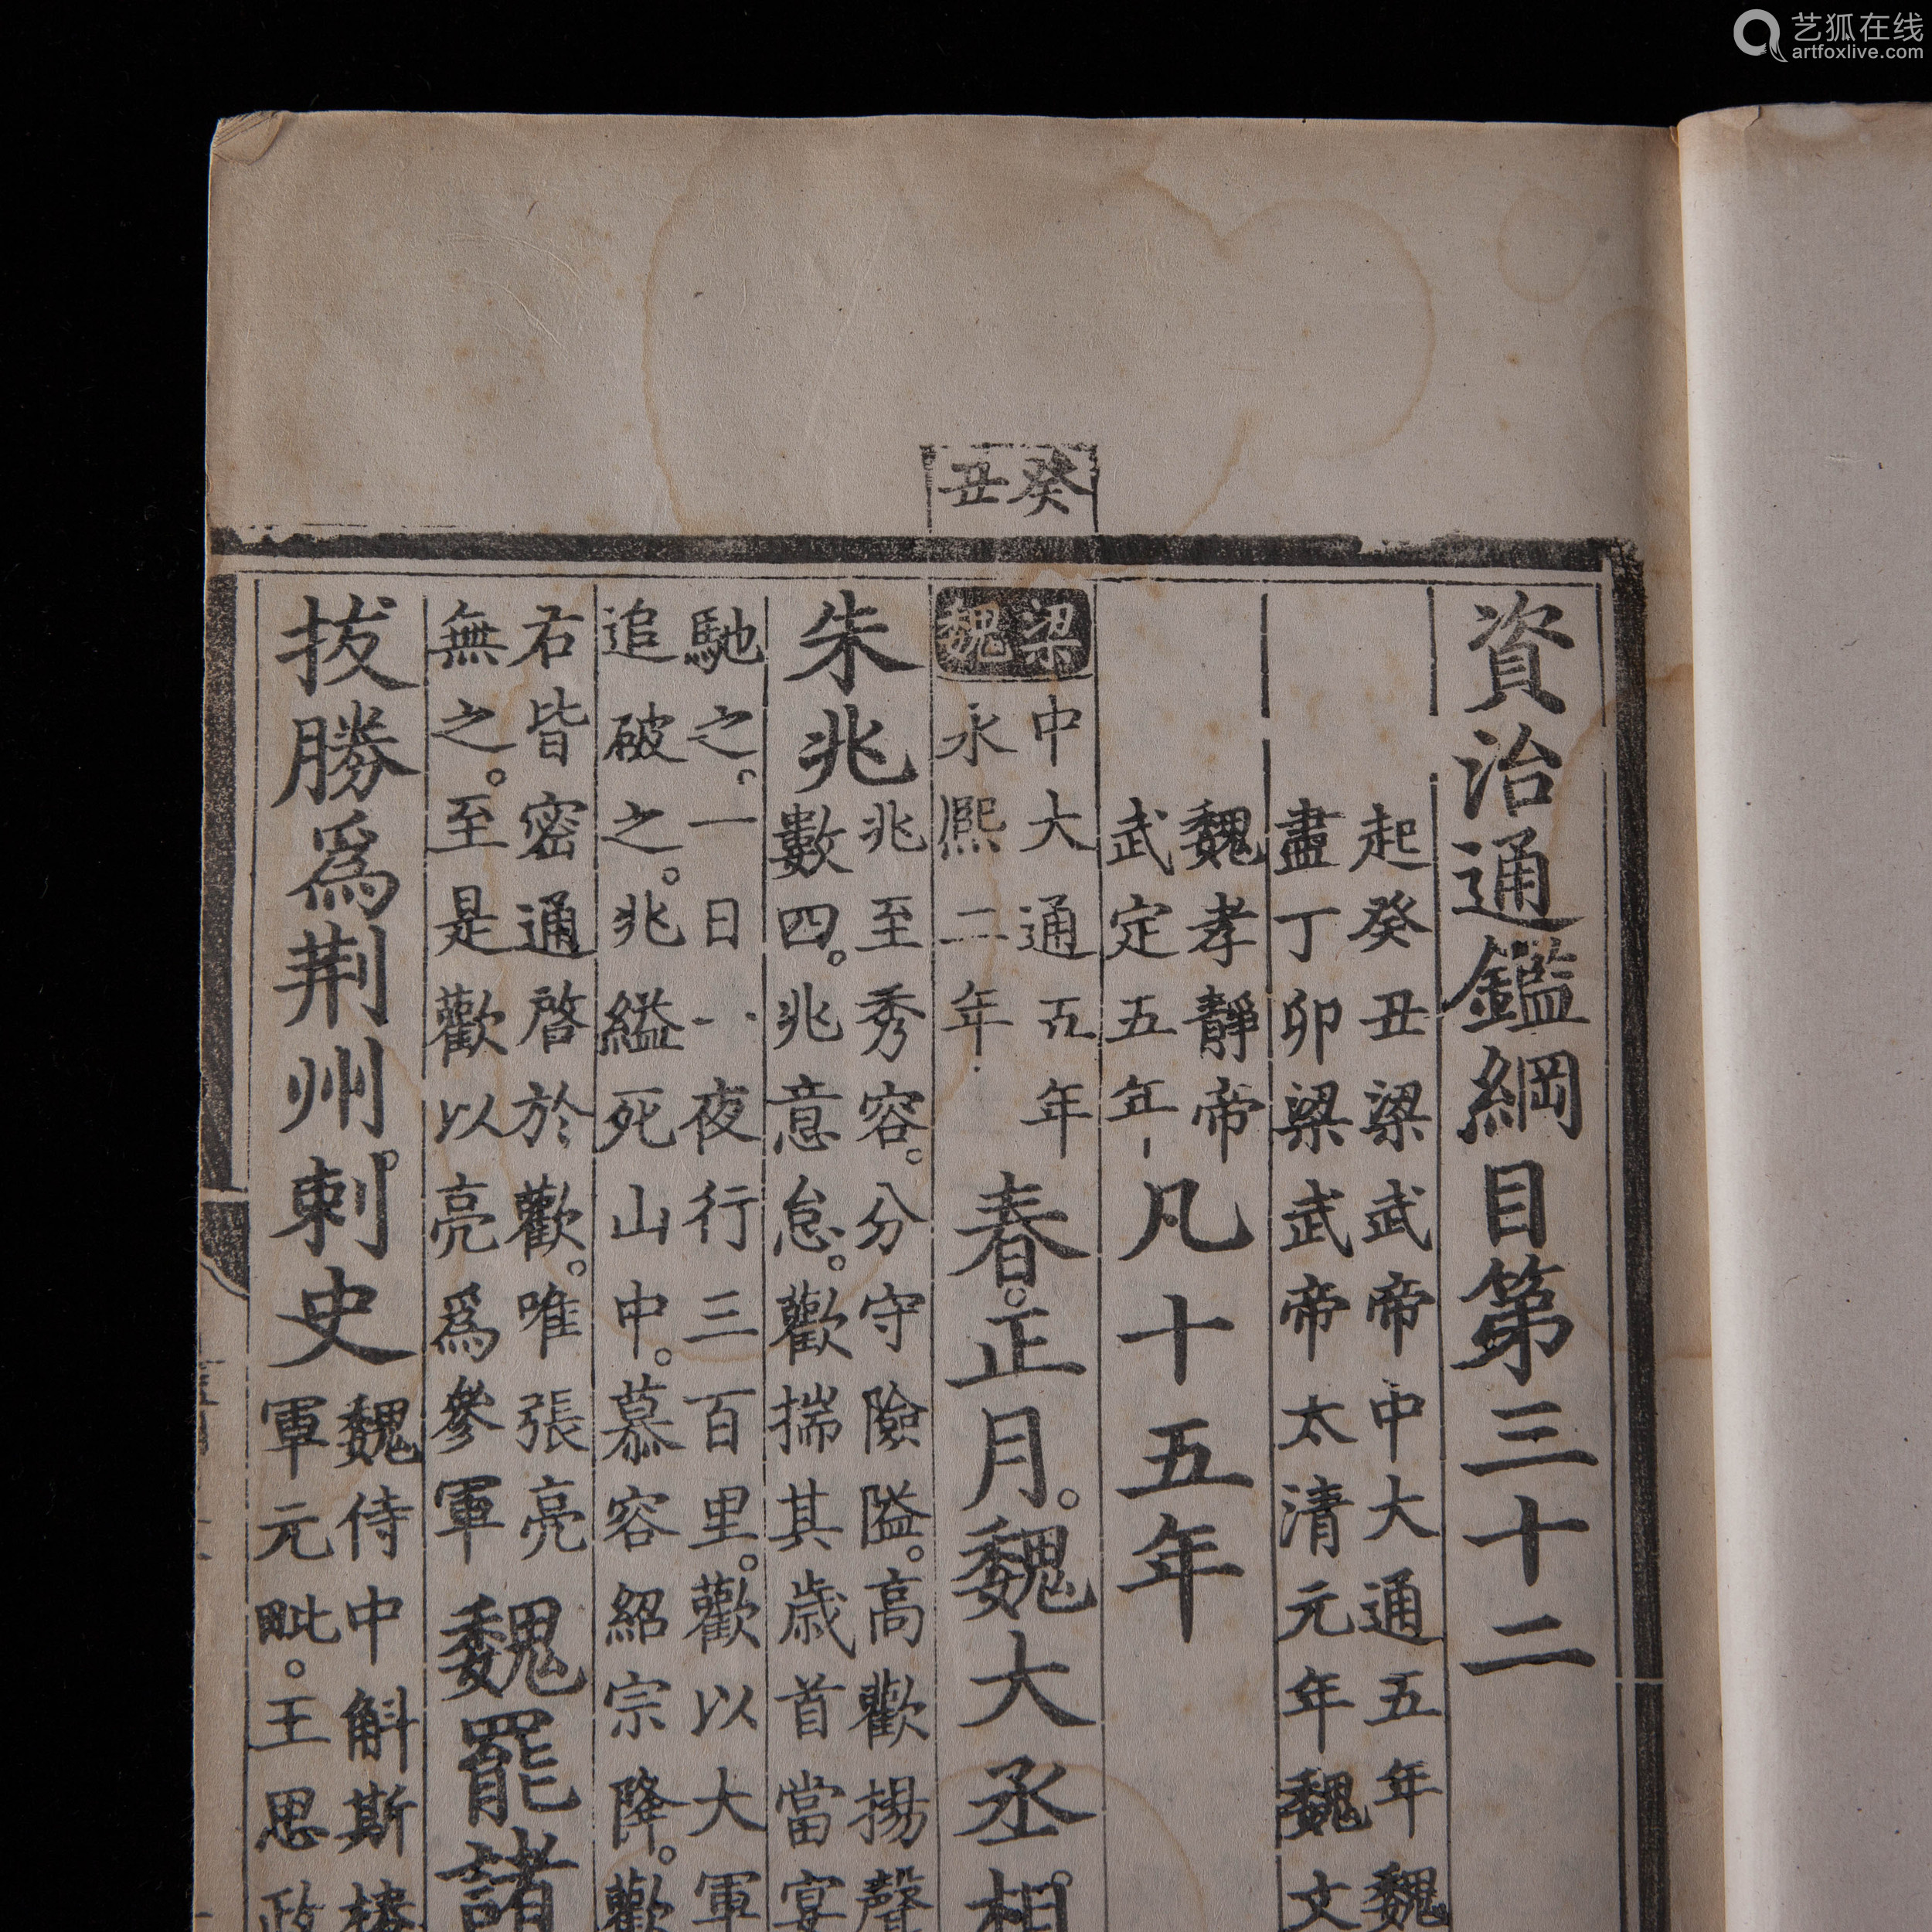 艺狐在线
artfoxlive.com
癸丑
資治通鑑綱目第三十二
起癸丑梁武帝中大通五年魏
盡丁卯梁武帝太清元年魏文
魏孝靜帝
武定五年
凡十五年
梁
魏
中大通五年
永熙二年
春。正月。魏大丞相
朱兆
兆至秀容。分守險隘。高歡揚聲
數四。兆意怠。歡揣其歲首當宴
馳之。一日一夜行三百里。歡以大軍
追破之。兆縊死山中。慕容紹宗降。歡
右皆密通啓於歡。唯張亮
無之。至是歡以亮爲參軍
魏罷諸
拔勝爲荆州。刺史
魏侍中斛斯椿
軍元毗。王思政